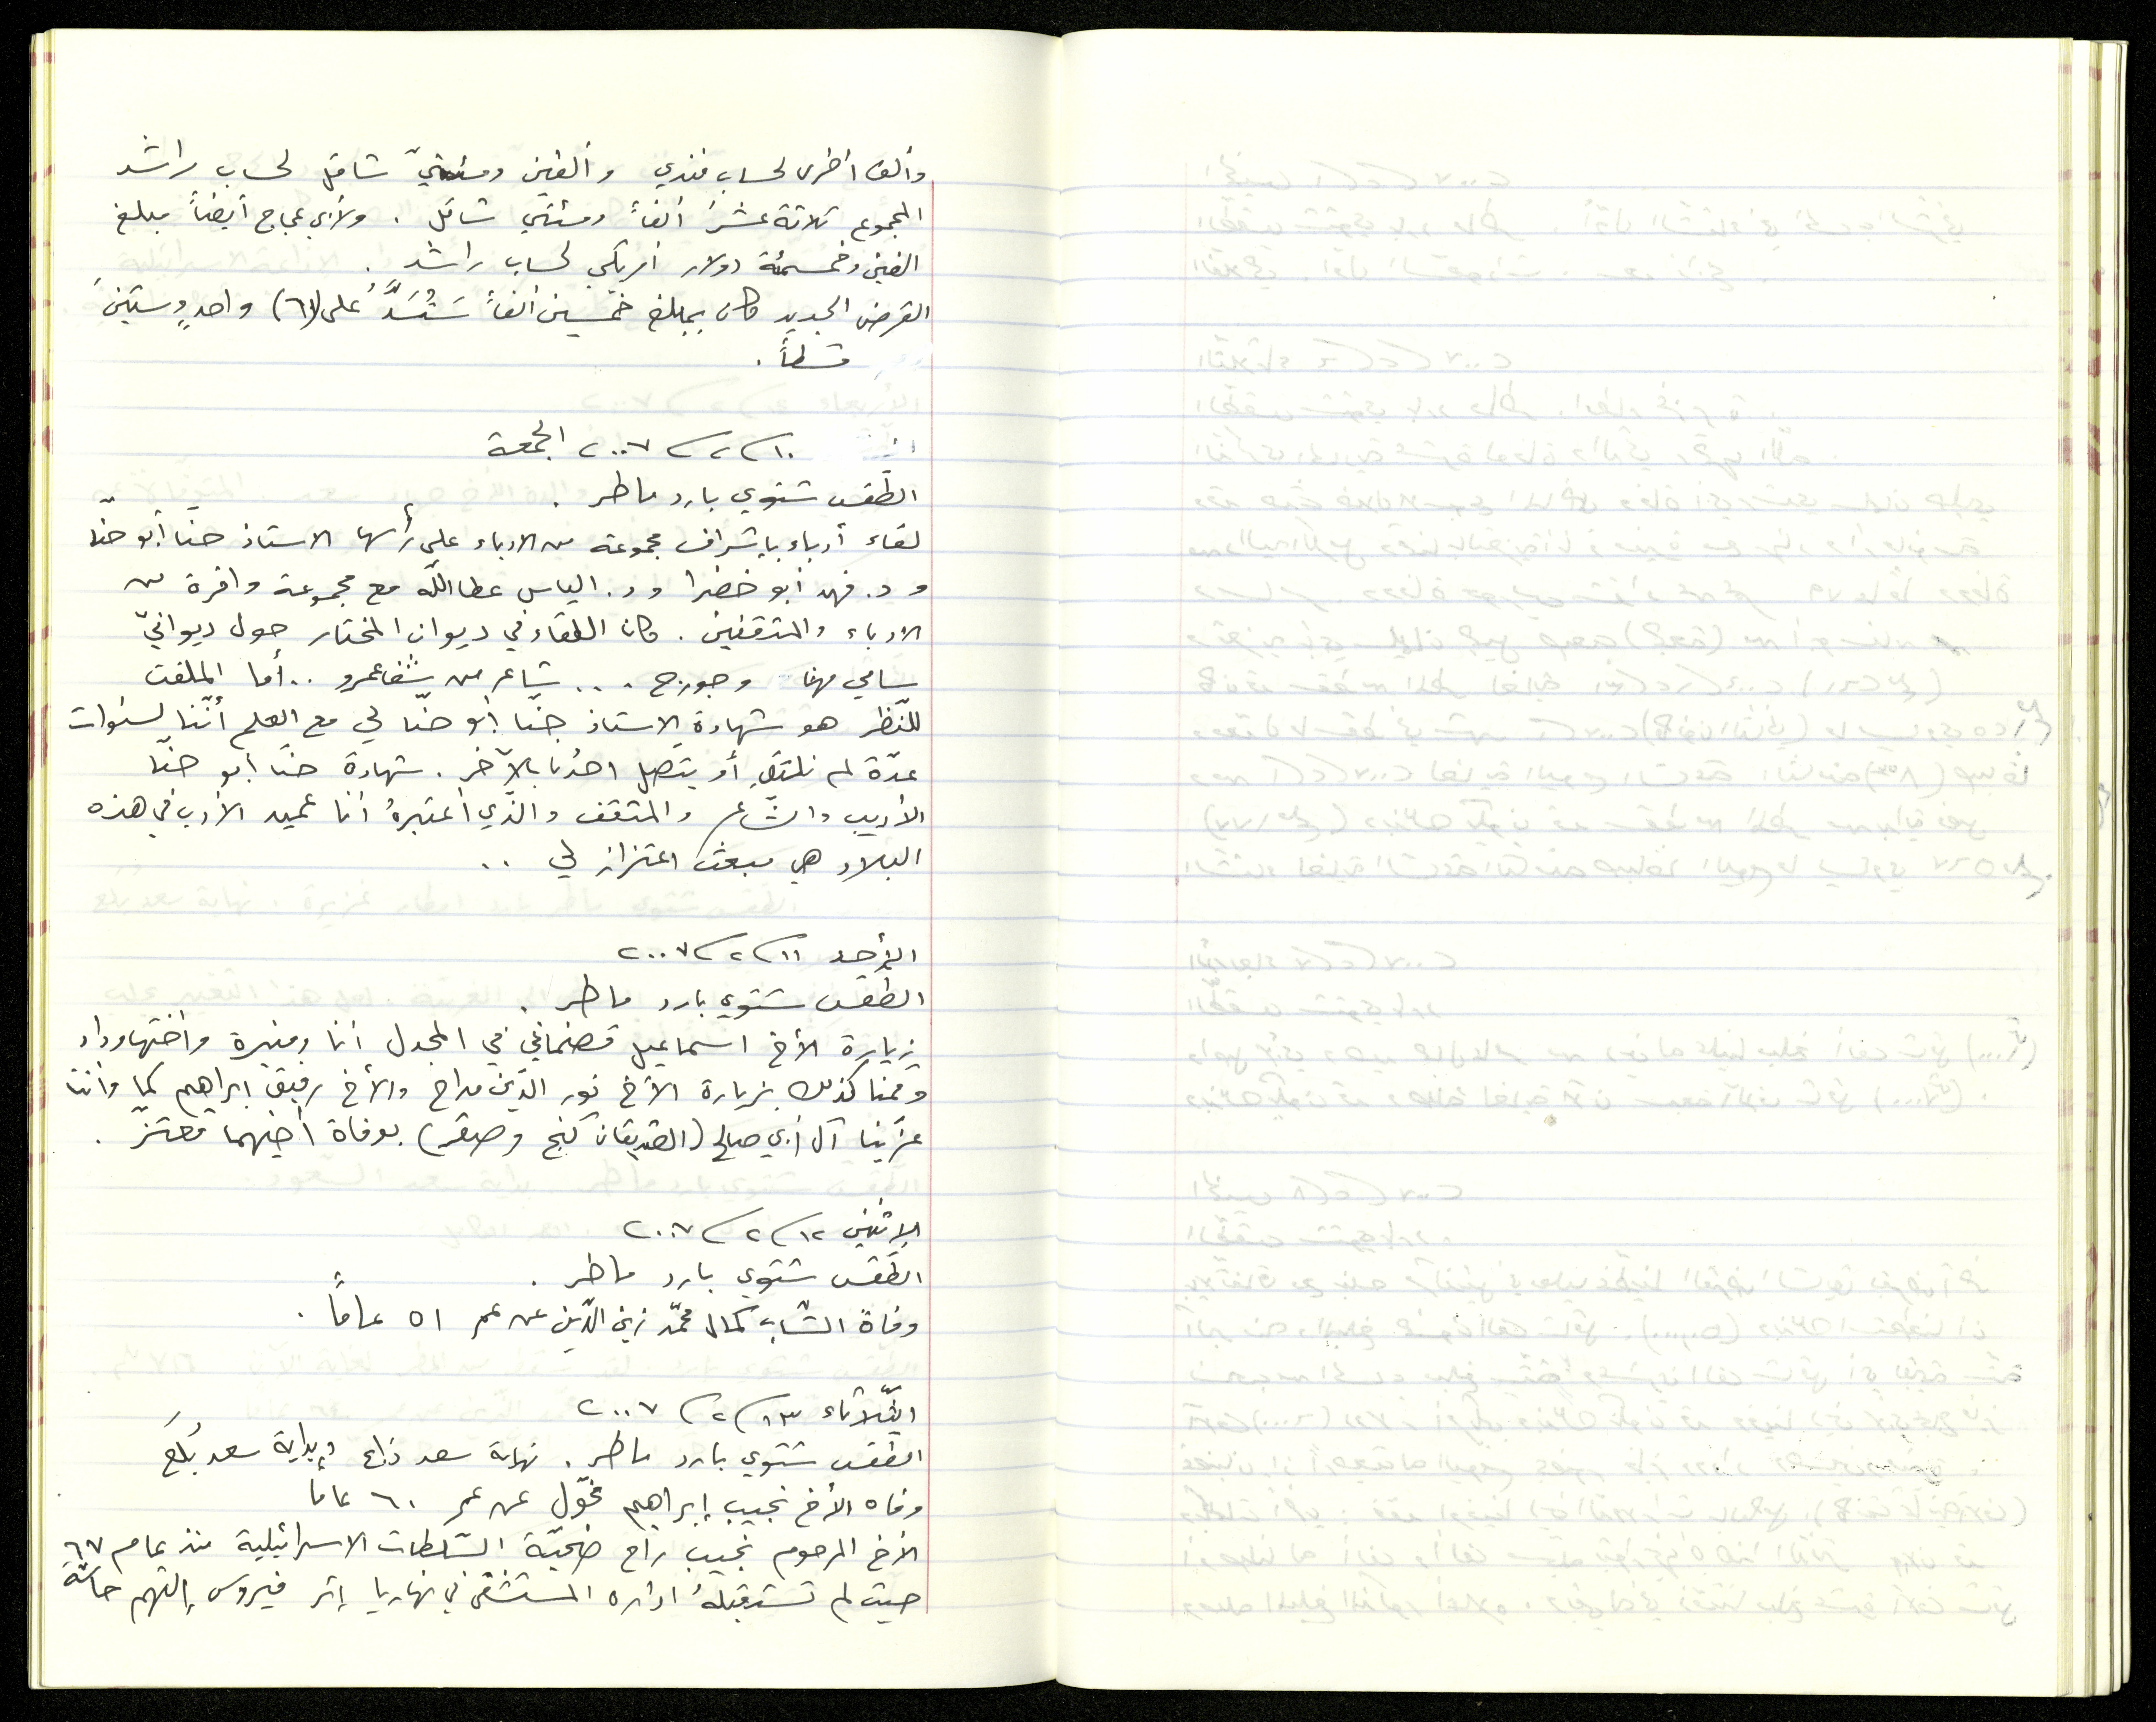 وألف أخرى لحساب فندي وألفين ومئتيّ شاقل لحساب راشد
المجموع ثلاثة عشرَ ألفاً ومئتي شاقل . ولأبي عجاج أيضاً مبلغ
الفين وخمسمئة دولار أمريكي لحساب راشد .
القرض الجديد كان بمبلغ خمسين ألفاً سَتُسَدَّدُ على (٦١) واحدٍ وستينَ
قسطاً .
١٠/٢/٢٠٠٧ الجمعة
الطقس شتوي بارد ماطر .
لقاء أدباء بإشراف مجموعة من الادباء على رأسها الاستاذ حنا أبو حنّا
و د. فهد أبو خضرا و د. الياس عطا اللّه مع مجموعة وافرة من
الادباء والمثقفين . وكان اللقاء في ديوان المختار حول ديوانيّ
سامي مهنا وجورج ... شاعر من شفاعمرو .. أما الملفت
للنّظر هو شهادة الاستاذ حنّا أبو حنّا لي مع العلم أنّنا لسنوات
عدّة لم نلتقِ أو يتصل احدُنا بالآخر . شهادة حنّا أبو حنّا
الأديب والشّاعر والمثقف والذّي أعتبرهُ أنا عميد الأدب في هذه
البلاد هي مبعث اعتزاز لي ..
الأحد ١١/٢/٢٠٠٧
الطقس شتوي بارد ماطر .
زيارة الأخ اسماعيل قضماني في المجدل أنا ومنيرة وأختها وداد
وقمنا كذلك بزيارة الأخ نور الدّين مداح والأخ رفيق ابراهيم كما وأننا
عزّينا آل أبي صالح (الصّديقان كنج وصقر) بوفاة أخيهما معتزّ .
الاثنين ١٢/٢/٢٠٠٧
الطّقس شتوي بارد ماطر .
وفاة الشّاب كمال محمّد زين الدّين عن عمر ٥١ عاماً .
الثّلاثاء ١٣/٢/٢٠٠٧
الطقس شتوي بارد ماطر . نهاية سعد ذابح وبداية سعد بُلَعَ
وفاه الأخ نجيب إبراهيم نخّول عن عمر ٦٠ عاما
الأخ المرحوم نجيب راح ضحيّة السّلطات الاسرائيلية منذ عام ٦٧
حيث لم تستقبلهُ اداره المستشفى في نهاريا إثر فيروس إلتهم حاسّة